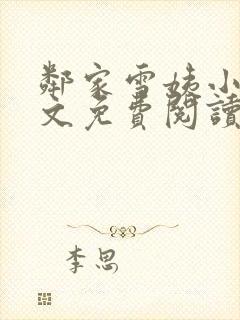 鄰家雪姨小
文免費閱讀
李思